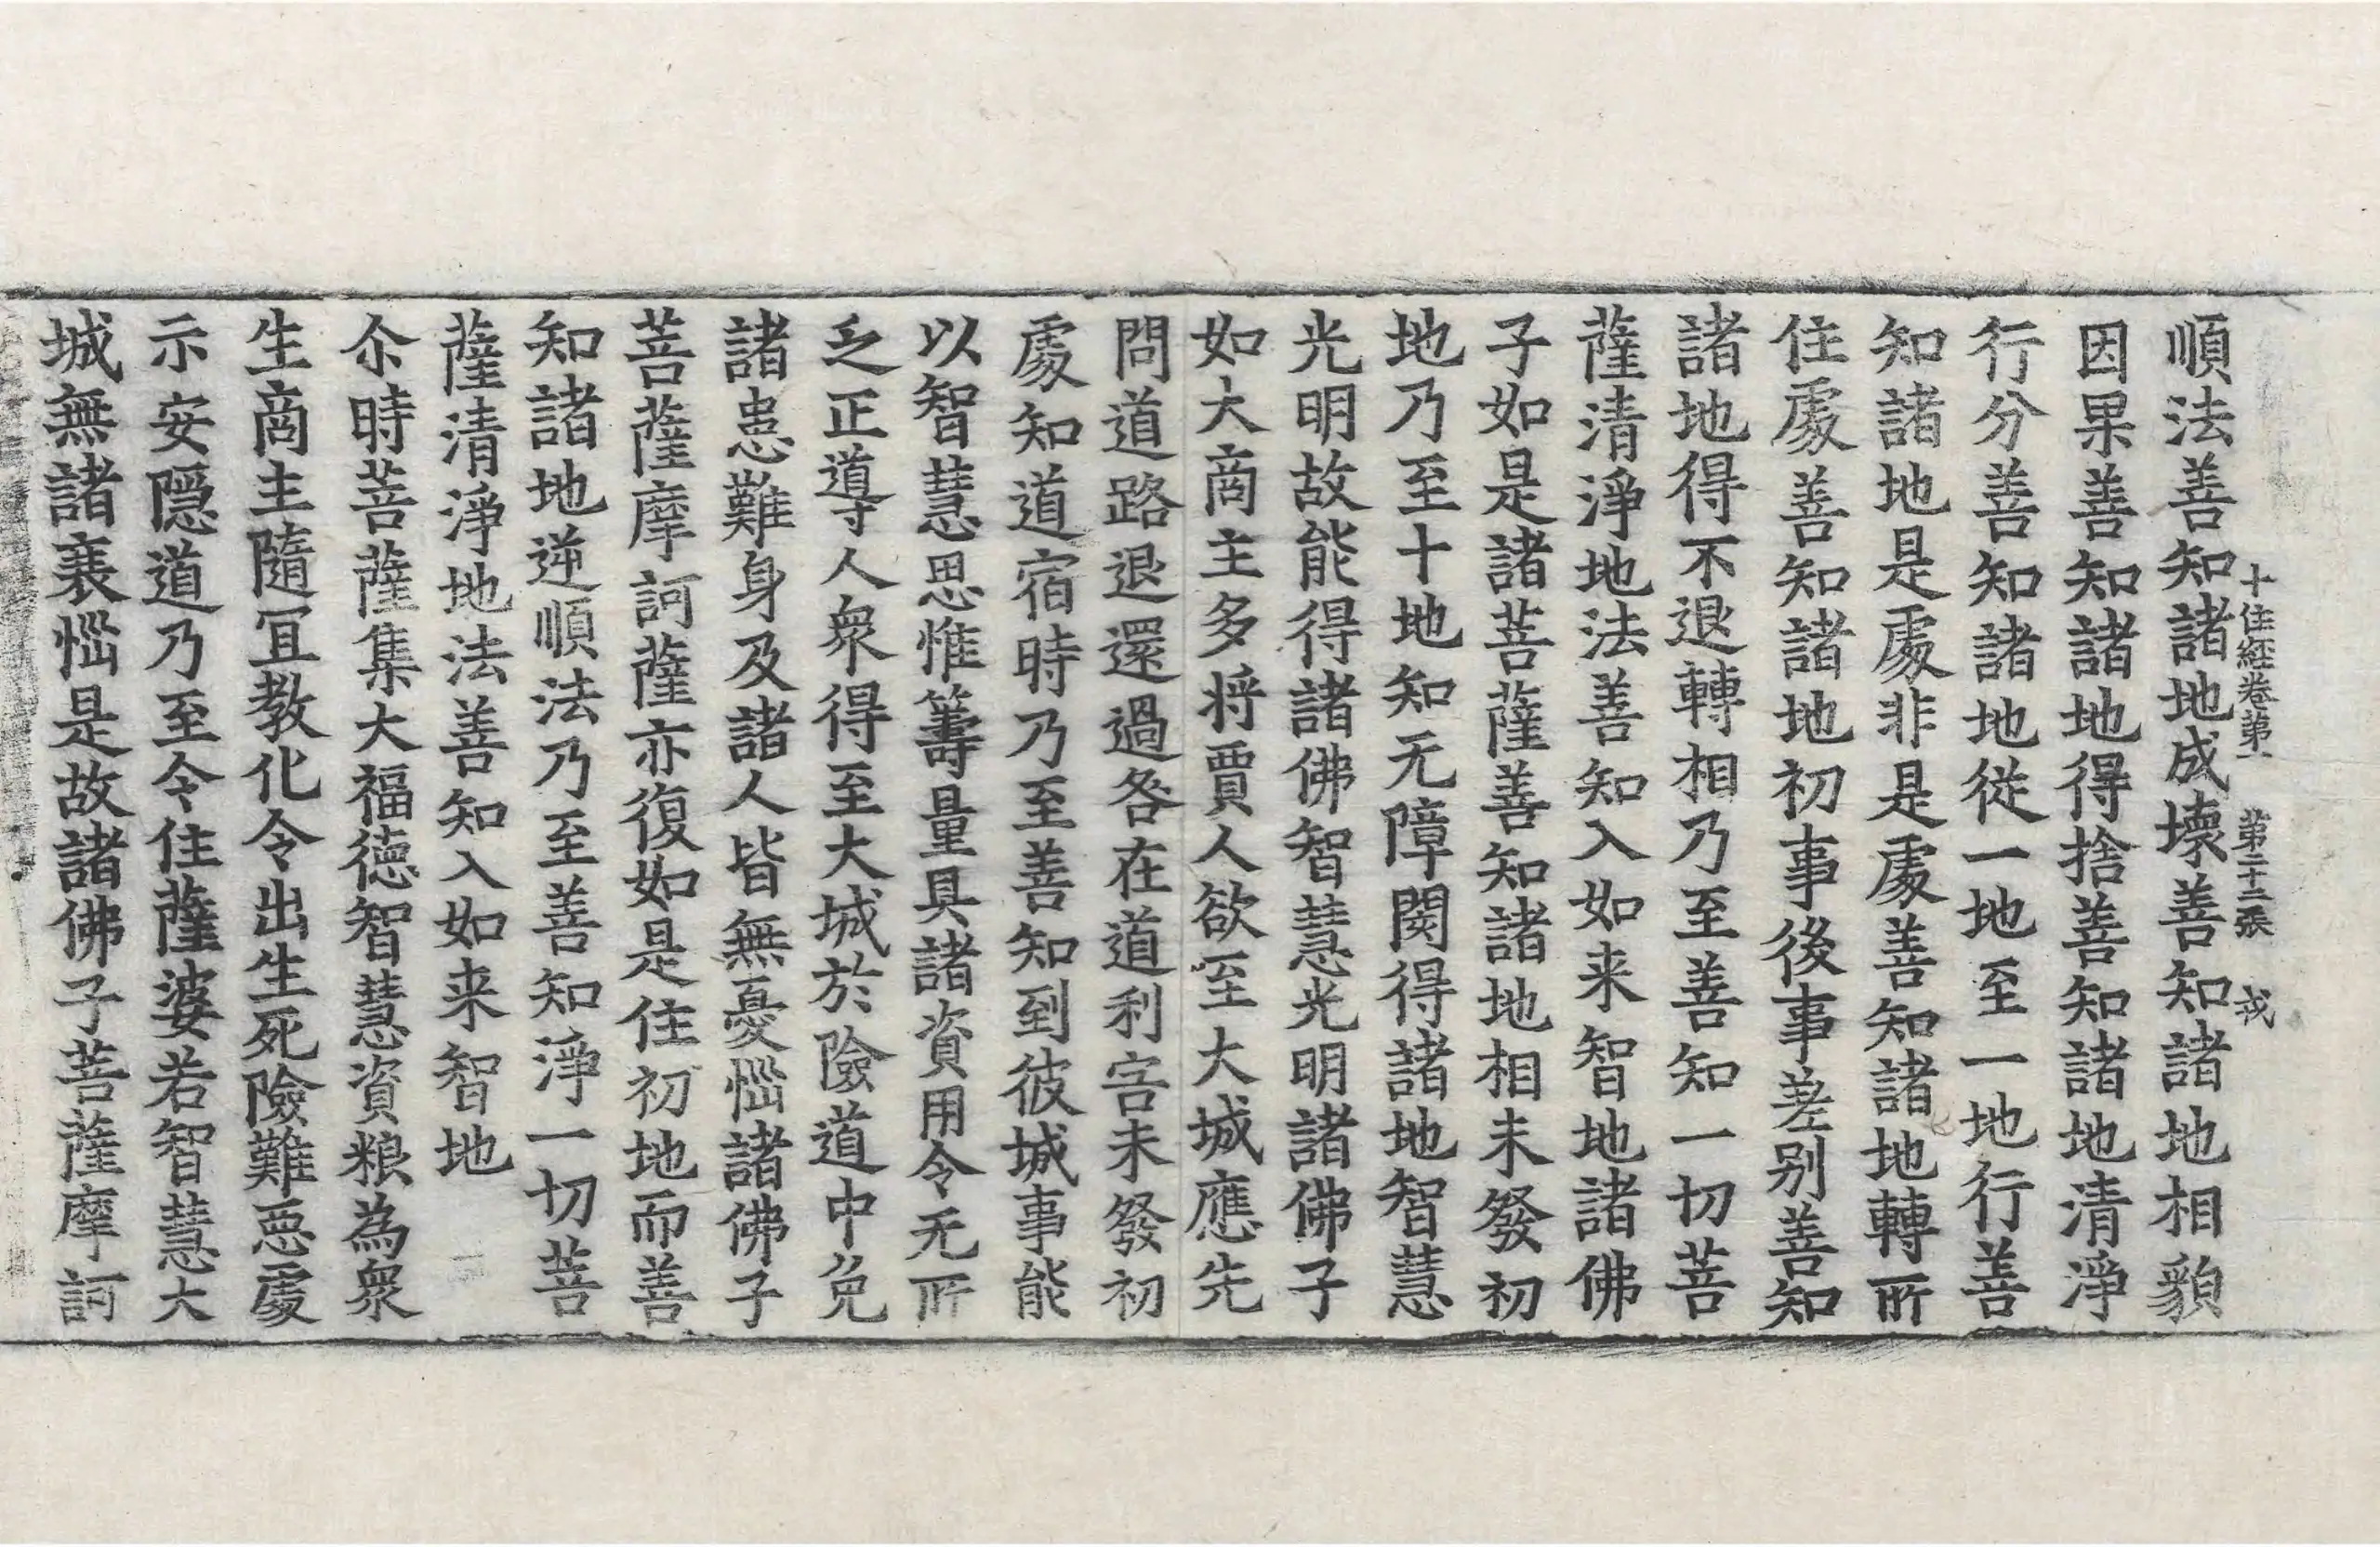 順法善知諸地成壞善知諸地相貌
十住經卷第一 第二十二張 戎
因果善知諸地得捨善知諸地清淨
行分善知諸地従一地至一地行善
知諸地是處非是處善知諸地轉所
住處善知諸地初事後事差別善知
諸地得不退轉相乃至善知一切菩
薩清淨地法善知入如来智地諸佛
子如是諸菩薩善知諸地相未發初
地乃至十地知无障閡得諸地智慧
光明故能得諸佛智慧光明諸佛子
如大商主多将賈人欲至大城應先
問道路退還過咎在道利害未發初
處知道宿時乃至善知到彼城事能
以智慧思惟籌量具諸資用令无所
乏正導人衆得至大城於險道中免
諸患難身及諸人皆無憂惱諸佛子
菩薩摩訶薩亦復如是住初地而善
知諸地逆順法乃至善知淨一切菩
薩清淨地法善知入如来智地
尒時菩薩集大福德智慧資粮為衆
生商主隨冝教化令出生死險難惡處
示安隱道乃至令住薩婆若智慧大
城無諸衰惱是故諸佛子菩薩摩訶